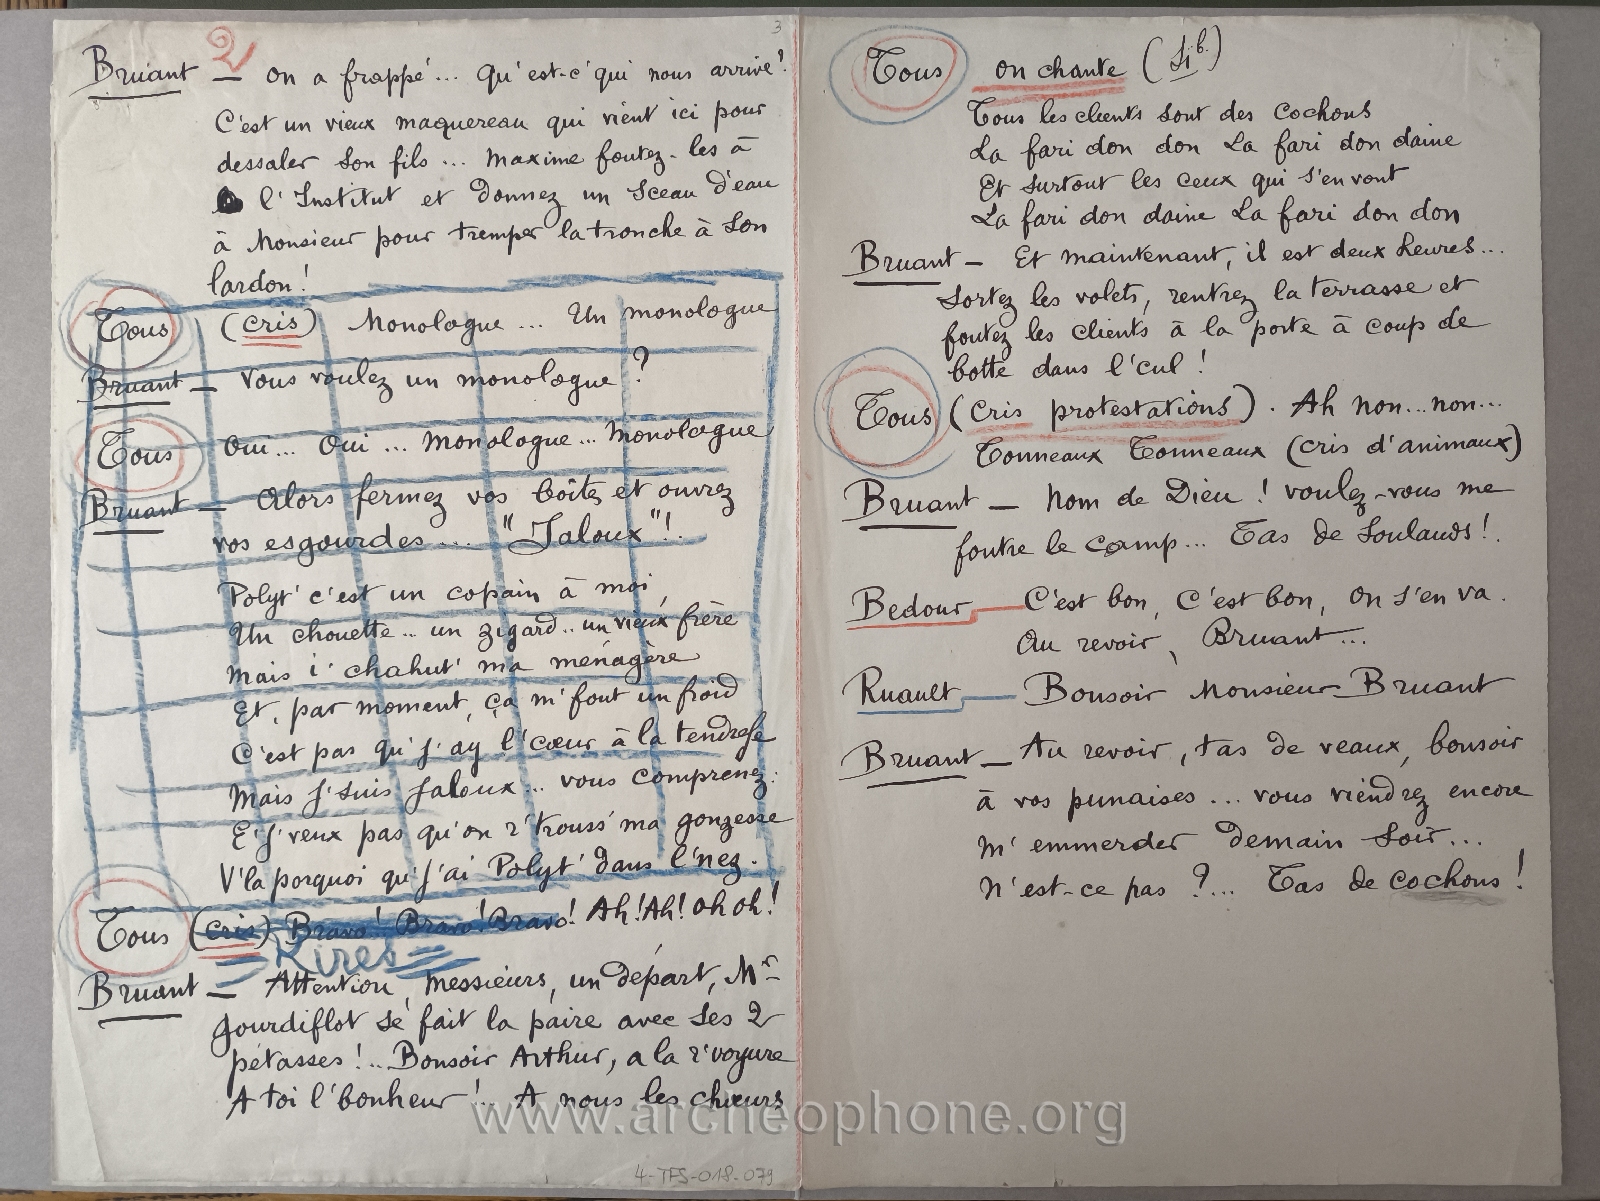 2
3
Bruant — On a frappé... Qu'est-c'qui nous arrive ?
C'est un vieux maquereau qui vient ici pour
dessaler son fils... Maxime foutez-les à
l'Institut et donnez un sceau d'eau
à Monsieur pour tremper la tronche à son
lardon !
Tous (cris) Monologue... Un monologue
Bruant — Vous voulez un monologue ?
Tous Oui... Oui... Monologue... Monologue
Bruant — Alors fermez vos boîtes et ouvrez
vos esgourdes... "Jaloux" !.
Polyt' c'est un copain à moi,
Un chouette.. un zigard.. un vieux frère
Mais i' chahut' ma ménagère
Et, par moment, ça m'fout un froid
C'est pas qu'j'ay l'cœur à la tendresse
Mais j'suis jaloux... vous comprenez :
E j'veux pas qu'on r'trouss' ma gonzesse
V'la porquoi qu'j'ai Polyt' dans l'nez.
Tous (cris) Bravo ! Bravo ! Bravo ! Ah ! Ah ! Oh oh !
Rires
Bruant — Attention, Messieurs, un départ, Mr
Gourdiflot se fait la paire avec ses 2
pétasses !.. Bonsoir Arthur, a la r'voyure
A toi l'bonheur !.. A nous les chœurs
4-TFS-018-079
Tous on chante (Si b.)
Tous les clients sont des cochons
La fari don don La fari don daine
Et surtout les ceux qui s'en vont
La fari don daine La fari don don
Bruant — Et maintenant, il est deux heures...
Sortez les volets, rentrez la terrasse et
foutez les clients à la porte à coup de
botte dans l'cul !
Tous (Cris protestations). Ah non... non...
Tonneaux Tonneaux (cris d'animaux)
Bruant — Nom de Dieu ! voulez-vous me
foutre le camp... Tas de Soulauds !.
Bedour — C'est bon, C'est bon, On s'en va.
Au revoir, Bruant...
Ruault — Bonsoir Monsieur Bruant
Bruant — Au revoir, tas de veaux, bonsoir
à vos punaises... vous viendrez encore
m'emmerder demain soir...
N'est-ce pas ?... Tas de cochons !
www.archeophone.org